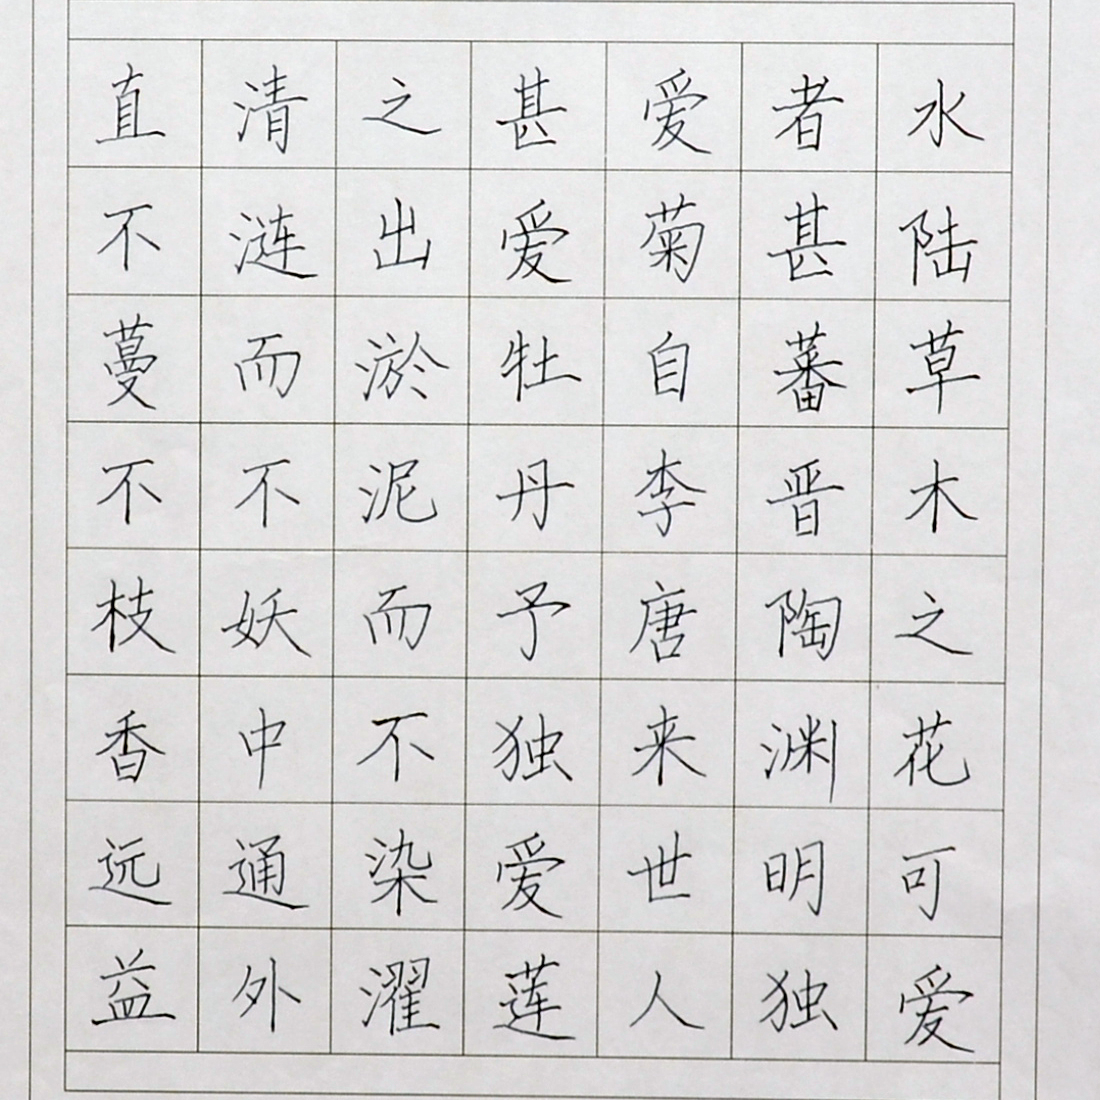 水陆草木之花可爱
者甚蕃晋陶渊明独
爱菊自李唐来世人
甚爱牡丹予独爱莲
之出淤泥而不染濯
清涟而不妖中通外
直不蔓不枝香远益